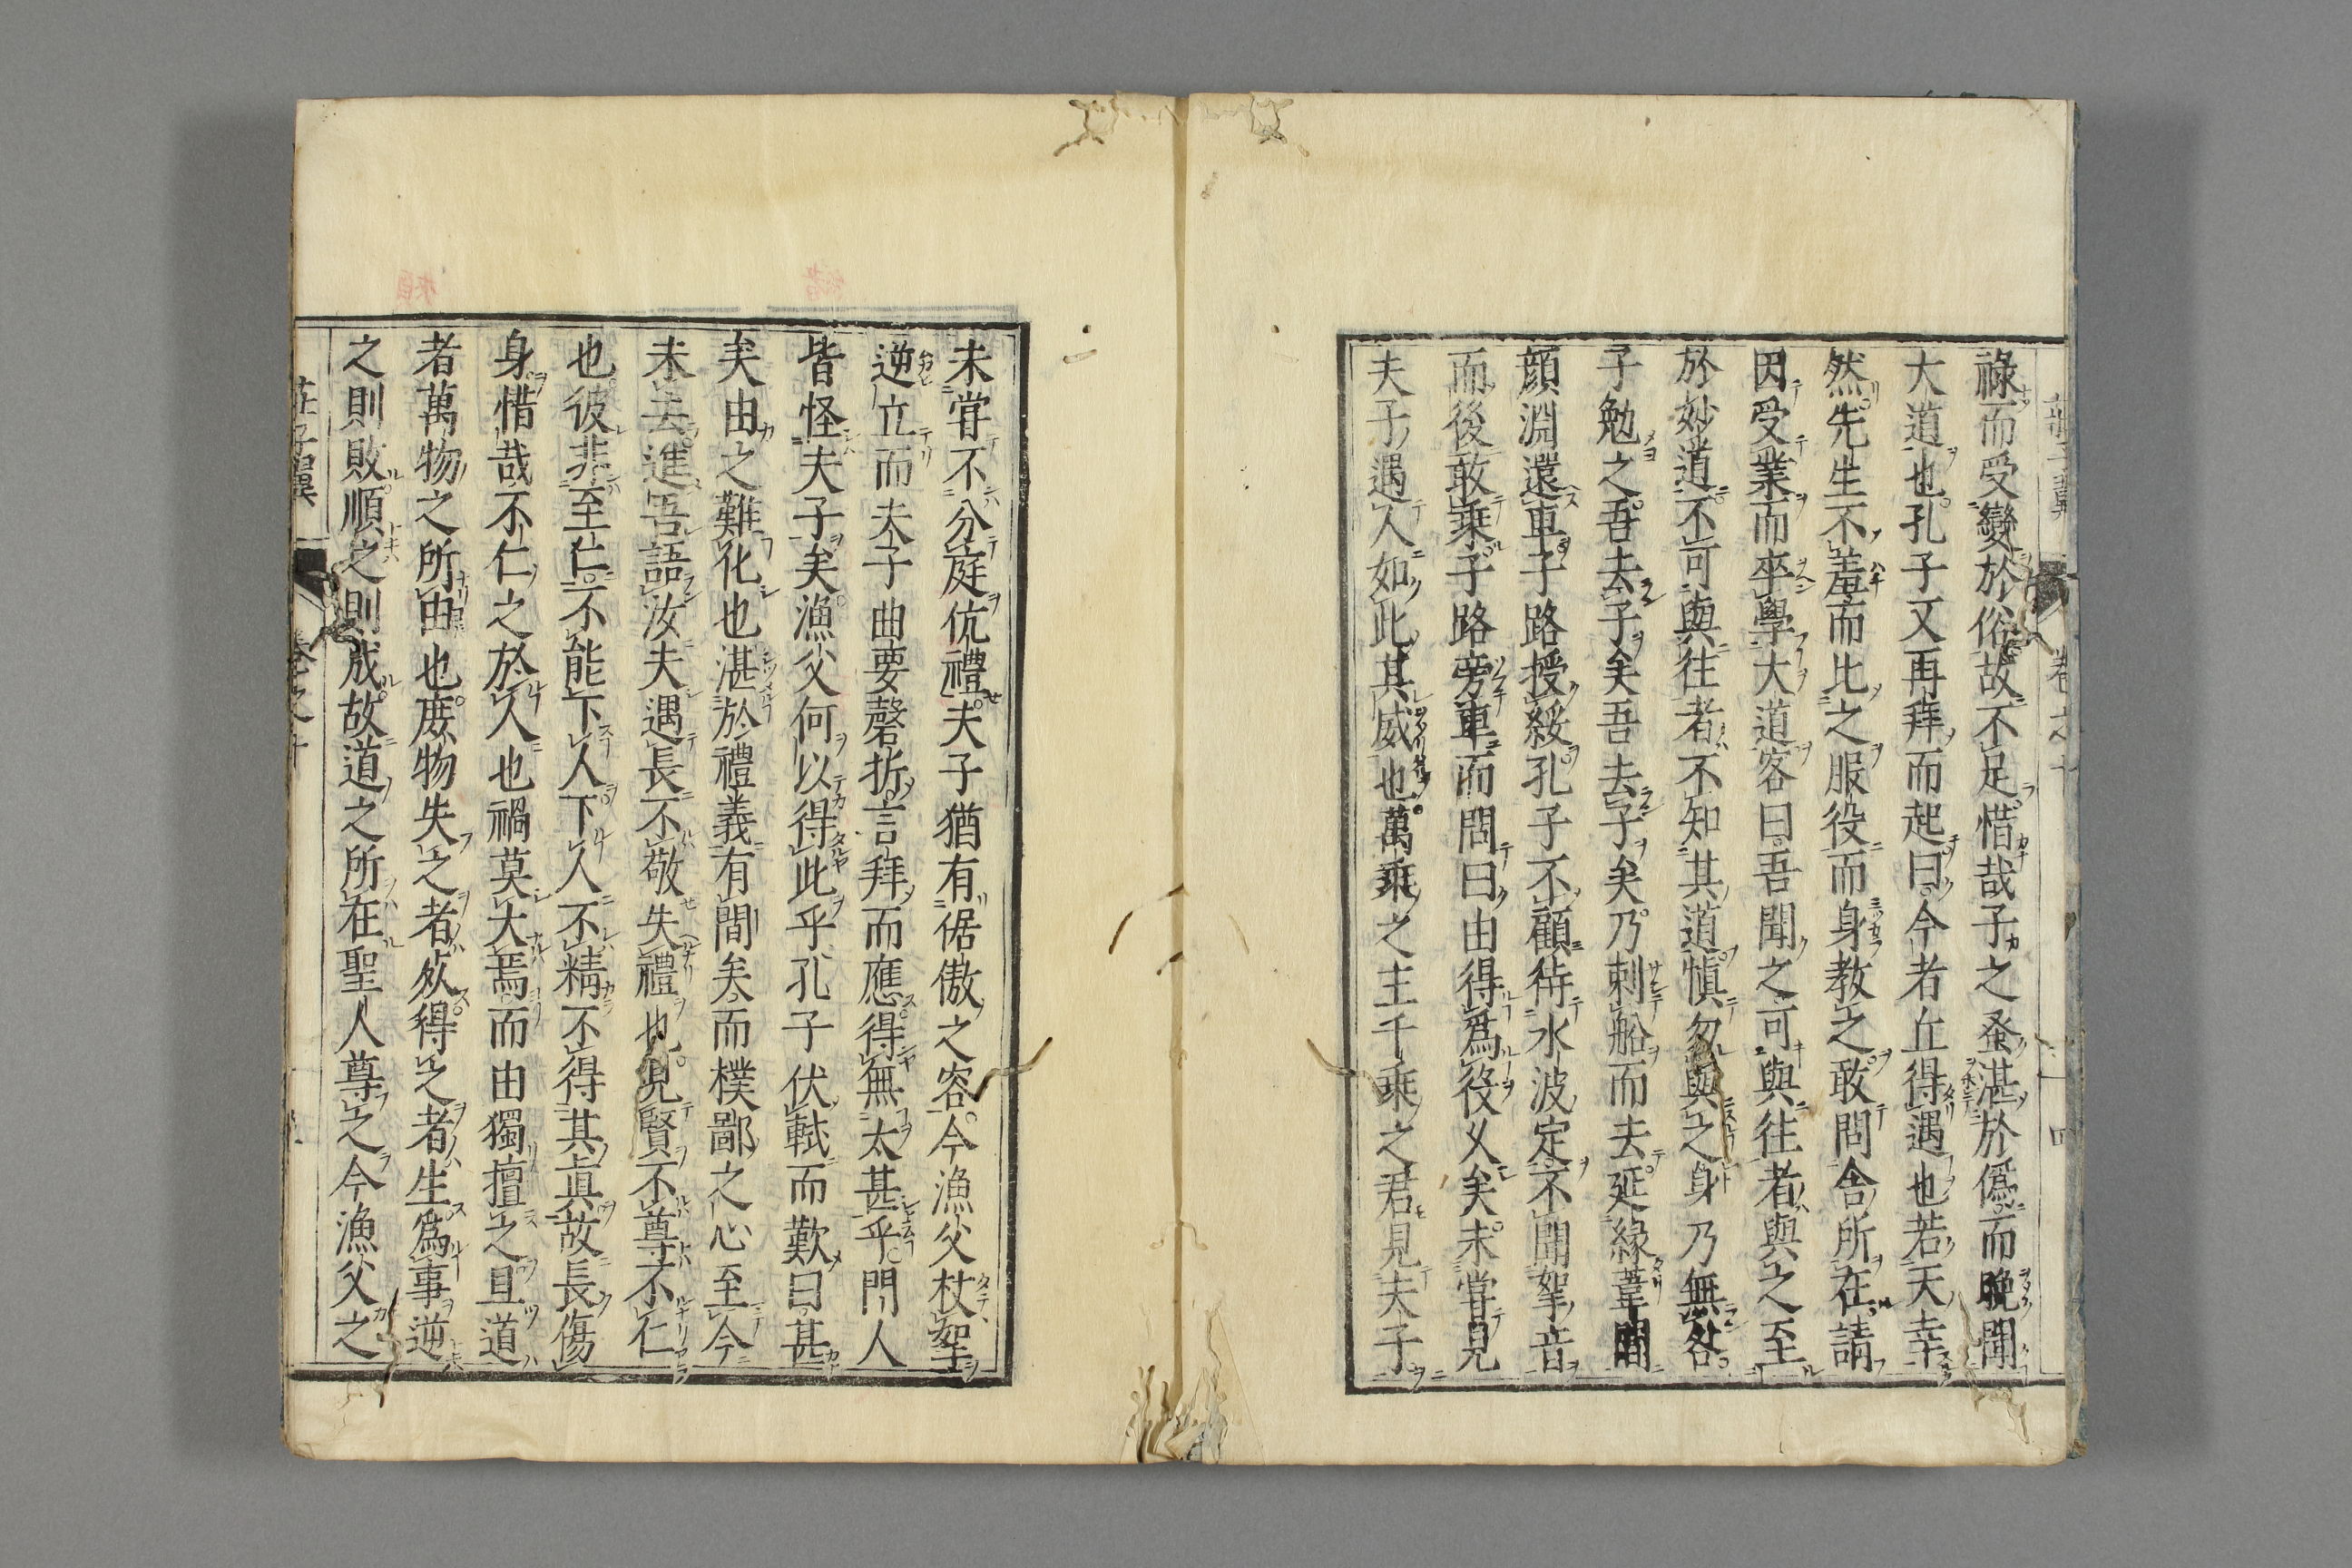 祿而受變於俗故不足惜哉子之蚤湛於僞而晩聞
大道也孔子又再拜而起曰今者丘得遇也若天幸
然先生不羞而比之服役而身教之敢問舎所在請
因受業而卒學大道客曰吾聞之可與往者與之至
於妙道不可與往者不知其道慎勿與之身乃無咎
子勉之吾去子矣吾去子矣乃刺船而去延緣葦閒
顔淵還車子路授綏孔子不顧待水波定不聞挐音
而後敢乗子路旁車而問曰由得爲役乆矣未甞見
夫子遇人如此其威也萬乗之主千乗之君見夫子
未甞不分庭伉禮夫子猶有倨傲之容今漁父杖挐
逆立而夫子曲要磬折言拜而應得無太甚乎門人
皆怪夫子矣漁父何以得此乎孔子伏軾而歎曰甚
矣由之難化也湛於禮義有間矣而樸鄙之心至今
未去進吾語汝夫遇長不敬失禮也見賢不尊不仁
也彼非至仁不能下人下人不精不得其眞故長傷
身惜哉不仁之於人也禍莫大焉而由獨擅之且道
者萬物之所由也庶物失之者死得之者生爲事逆
之則敗順之則成故道之所在聖人尊之今漁父之
莊子翼 卷之十